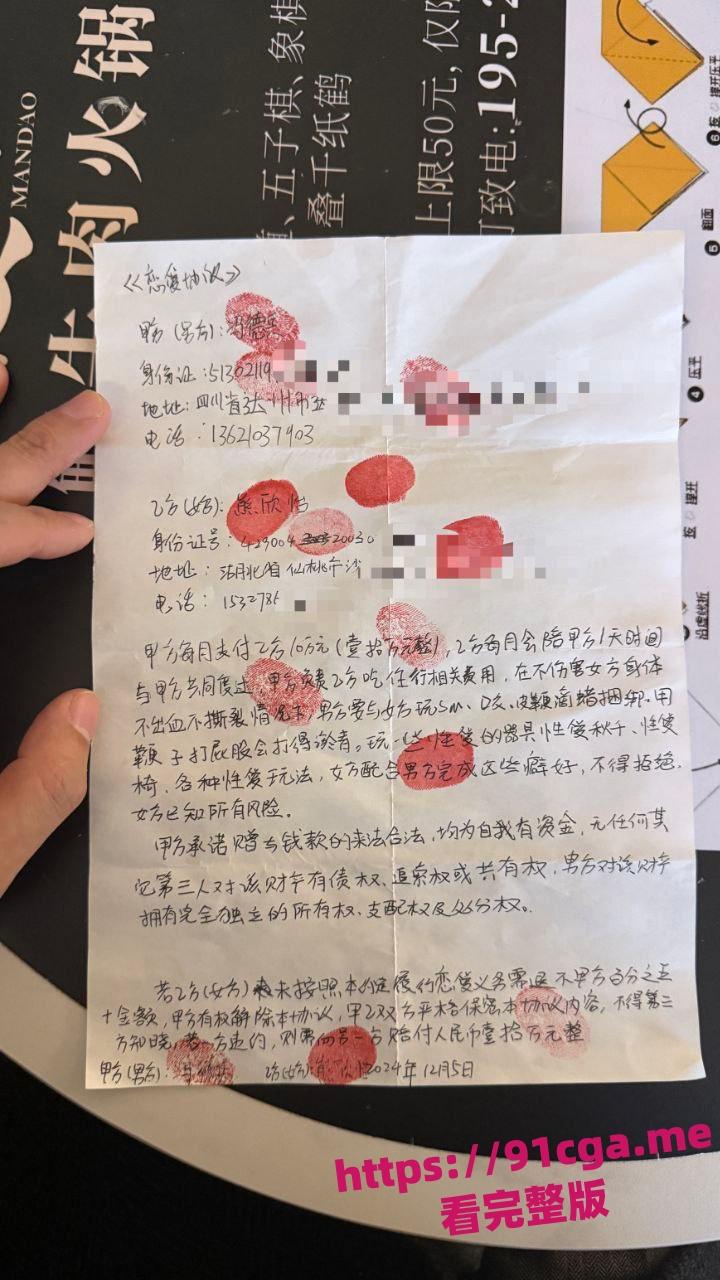 MANDAO
牛肉火锅
五子棋、象棋
叠千纸鹤
上限50元，仅限
可致电:
⑥ 按 ⇨ 撑开压平
⑤ 翻面
④ 压平
撑开
沿虚线折
《恋爱协议》
甲方（男方）：
身份证：
地址：
电话：
乙方（女方）：
身份证号：
地址：
电话：
甲方每月支付乙方10万元（壹拾万元整），乙方每月会陪甲方1天时间
与甲方共同度过，甲方负责乙方吃住行相关费用，在不伤害女方身体
不出血不撕裂情况下，男方要与女方玩sm、口交、皮鞭滴蜡捆绑，用
鞭子打屁股会打得淤青。玩一些性爱的器具性爱秋千、性爱
椅、各种性爱玩法，女方配合男方完成这些癖好，不得拒绝。
女方已知所有风险。
甲方承诺赠与钱款的来法合法，均为自我有资金，无任何其
它第三人对该财产有债权、追索权或共有权，男方对该财产
拥有完全独立的所有权、支配权及处分权。
若乙方（女方）未按照本约定履行恋爱义务需退还甲方百分之五
十金额，甲方有权解除本协议，甲乙双方严格保密本协议内容，不得第三
方知晓，若一方违约，则需向另一方赔付人民币壹拾万元整
甲方（男方）： 乙方（女方）： 2024年12月5日
看完整版